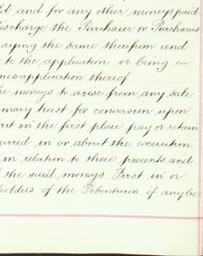 ld and for any other moneys paid
discharge the Purchaser or Purchasers
aying the same therefrom and
to the application or being co
misapplication thereof.
he moneys to arise from any sale
imary trust for conversion upon
ust in the first place pay or retain
curred in or about the execution
in relation to these presents and
the said moneys First in or
holders of the Debentures if any be